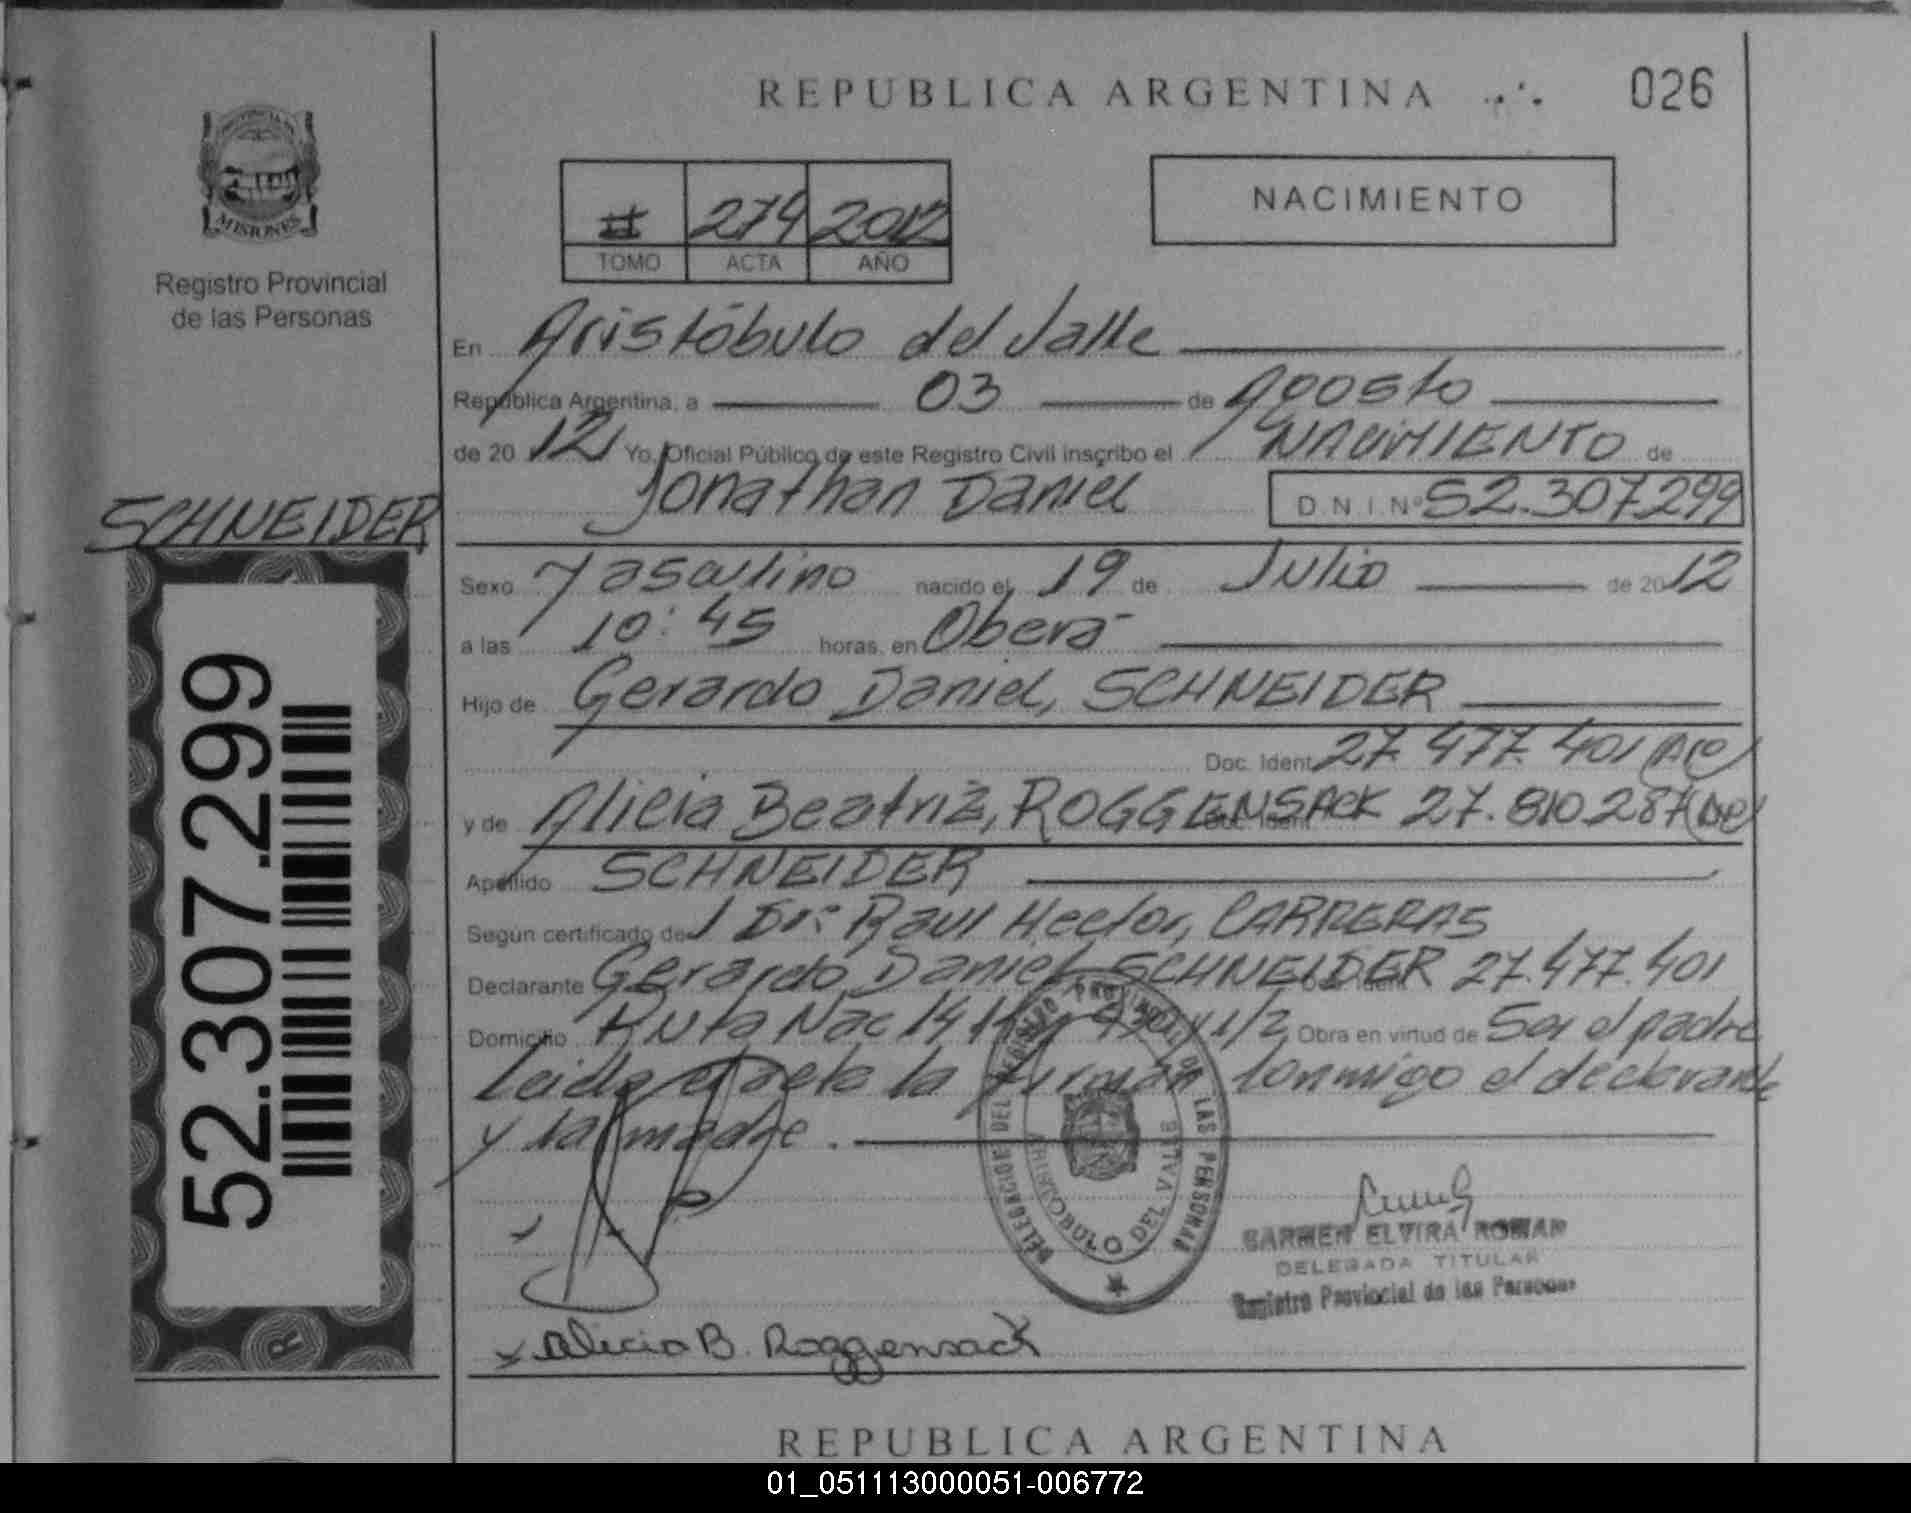 REPUBLICA ARGENTINA
026
MISIONES
Registro Provincial
de las Personas
II 274 2012
TOMO ACTA AÑO
NACIMIENTO
En Aristóbulo del Valle
República Argentina, a 03 de Agosto
de 2012 Yo, Oficial Público de este Registro Civil inscribo el NACIMIENTO de
Jonathan Daniel D.N.I.Nº 52.307.299
SCHNEIDER
52.307.299
Sexo Masculino nacido el 19 de Julio de 2012
a las 10:45 horas, en Oberá
Hijo de Gerardo Daniel, SCHNEIDER
Doc. Ident 27.477.401
y de Alicia Beatriz, ROGGENSACK 27.810.287
Apellido SCHNEIDER
Según certificado del Dr: Raul Hector, CARRERAS
Declarante Gerardo Daniel SCHNEIDER 27.477.401
Domicilio Ruta Nac 14 1/2 Obra en virtud de Ser el padre
Leida el acta la firman conmigo el declarante
y la madre.
DELEGACION DEL REGISTRO PROVINCIAL DE LAS PERSONAS
ARISTOBULO DEL VALLE
CARMEN ELVIRA ROMAN
DELEGADA TITULAR
Registro Provincial de las Personas
Alicia B. Roggensack
REPUBLICA ARGENTINA
01_051113000051-006772